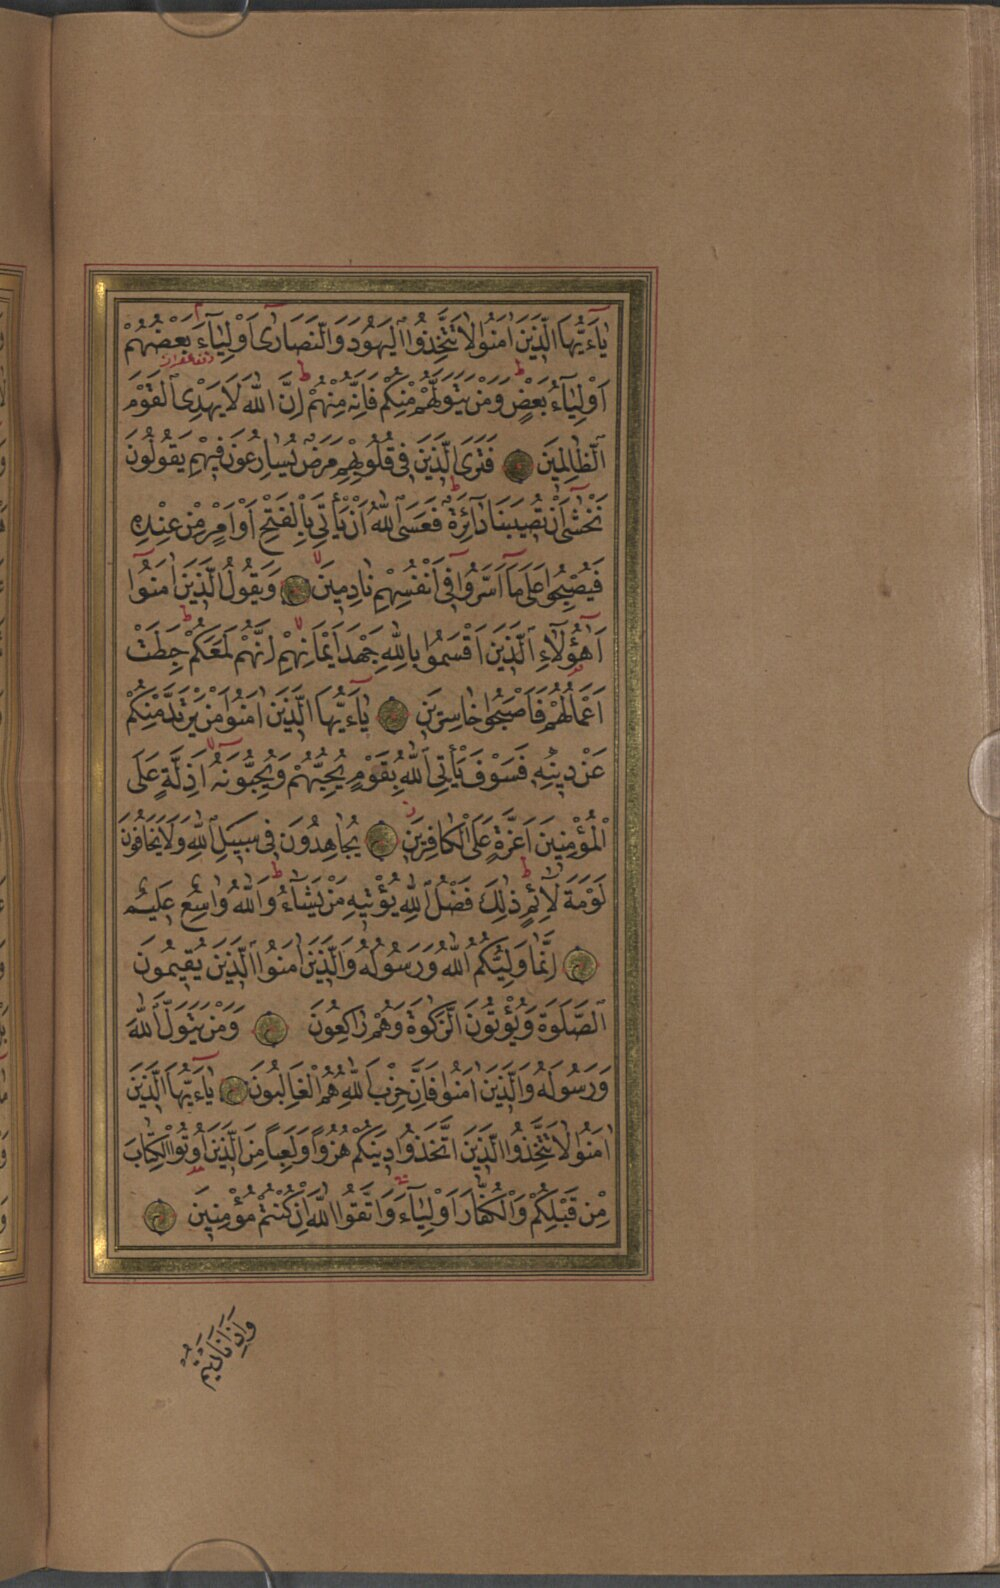 يَٓا اَيُّهَا الَّذٖينَ اٰمَنُوا لَا تَتَّخِذُوا الْيَهُودَ وَالنَّصَارٰٓى اَوْلِيَٓاءَ بَعْضُهُمْ
اَوْلِيَٓاءُ بَعْضٍ وَمَنْ يَتَوَلَّهُمْ مِنْكُمْ فَاِنَّهُ مِنْهُمْ اِنَّ اللّٰهَ لَا يَهْدِى الْقَوْمَ
الظَّالِمٖينَ فَتَرَى الَّذٖينَ فٖى قُلُوبِهِمْ مَرَضٌ يُسَارِعُونَ فٖيهِمْ يَقُولُونَ
نَخْشٰٓى اَنْ تُصٖيبَنَا دَٓائِرَةٌ فَعَسَى اللّٰهُ اَنْ يَاْتِىَ بِالْفَتْحِ اَوْ اَمْرٍ مِنْ عِنْدِهٖ
فَيُصْبِحُوا عَلٰى مَٓا اَسَرُّوا فٖٓى اَنْفُسِهِمْ نَادِمٖينَ وَيَقُولُ الَّذٖينَ اٰمَنُٓوا
اَهٰٓؤُلَٓاءِ الَّذٖينَ اَقْسَمُوا بِاللّٰهِ جَهْدَ اَيْمَانِهِمْ اِنَّهُمْ لَمَعَكُمْ حَبِطَتْ
اَعْمَالُهُمْ فَاَصْبَحُوا خَاسِرٖينَ يَٓا اَيُّهَا الَّذٖينَ اٰمَنُوا مَنْ يَرْتَدَّ مِنْكُمْ
عَنْ دٖينِهٖ فَسَوْفَ يَاْتِى اللّٰهُ بِقَوْمٍ يُحِبُّهُمْ وَيُحِبُّونَهُٓ اَذِلَّةٍ عَلَى
الْمُؤْمِنٖينَ اَعِزَّةٍ عَلَى الْكَافِرٖينَ يُجَاهِدُونَ فٖى سَبٖيلِ اللّٰهِ وَلَا يَخَافُونَ
لَوْمَةَ لَٓائِمٍ ذٰلِكَ فَضْلُ اللّٰهِ يُؤْتٖيهِ مَنْ يَشَٓاءُ وَاللّٰهُ وَاسِعٌ عَلٖيمٌ
اِنَّمَا وَلِيُّكُمُ اللّٰهُ وَرَسُولُهُ وَالَّذٖينَ اٰمَنُوا الَّذٖينَ يُقٖيمُونَ
الصَّلٰوةَ وَيُؤْتُونَ الزَّكٰوةَ وَهُمْ رَاكِعُونَ وَمَنْ يَتَوَلَّ اللّٰهَ
وَرَسُولَهُ وَالَّذٖينَ اٰمَنُوا فَاِنَّ حِزْبَ اللّٰهِ هُمُ الْغَالِبُونَ يَٓا اَيُّهَا الَّذٖينَ
اٰمَنُوا لَا تَتَّخِذُوا الَّذٖينَ اتَّخَذُوا دٖينَكُمْ هُزُوًا وَلَعِبًا مِنَ الَّذٖينَ اُوتُوا الْكِتَابَ
مِنْ قَبْلِكُمْ وَالْكُفَّارَ اَوْلِيَٓاءَ وَاتَّقُوا اللّٰهَ اِنْ كُنْتُمْ مُؤْمِنٖينَ
وَاِذَا نَادَيْتُمْ